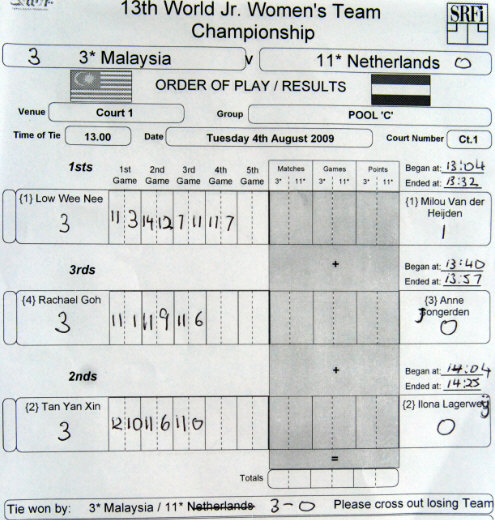 13th World Jr. Women's Team
Championship
SRFi
3 3* Malaysia v 11* Netherlands 0
ORDER OF PLAY / RESULTS
Venue Court 1 Group POOL 'C'
Time of Tie 13.00 Date Tuesday 4th August 2009 Court Number Ct.1
1sts 1st Game 2nd Game 3rd Game 4th Game 5th Game Matches 3* 11* Games 3* 11* Points 3* 11* Began at: 13:04
Ended at: 13:32
{1} Low Wee Nee 3 11 3 14 12 7 11 11 7 {1} Milou Van der Heijden 1
3rds + Began at: 13:40
Ended at: 13:57
{4} Rachael Goh 3 11 1 11 9 11 6 {3} Anne Jongerden 0
2nds + Began at: 14:04
Ended at: 14:25
{2} Tan Yan Xin 3 12 10 11 6 11 0 {2} Ilona Lagerweÿ 0
=
Totals
Tie won by: 3* Malaysia / 11* Netherlands 3-0 Please cross out losing Team